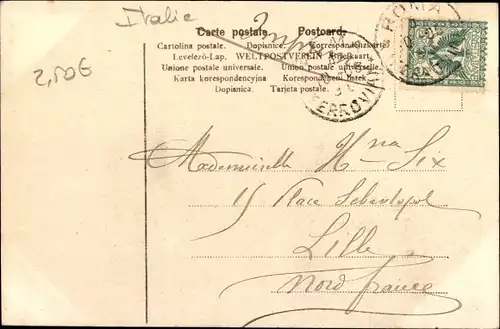 Italie
2,50€
Carte postale. Postcard.
Cartolina postale. Dopisnice. Korrespondenzkarte
Levelező-Lap. WELTPOSTVEREIN Briefkaart.
Unione postale universale. Union postale universelle.
Karta korespondencyjna Korespondenční lístek.
Dopisnica. Tarjeta postal.
ROMA
FERROVIA
Mademoiselle Hna Six
15 Place Sébastopol
Lille
Nord France